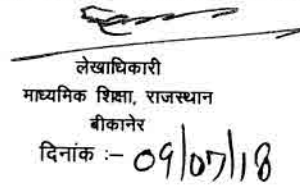 लेखाधिकारी
माध्यमिक शिक्षा, राजस्थान
बीकानेर
दिनांक :- 09/07/18